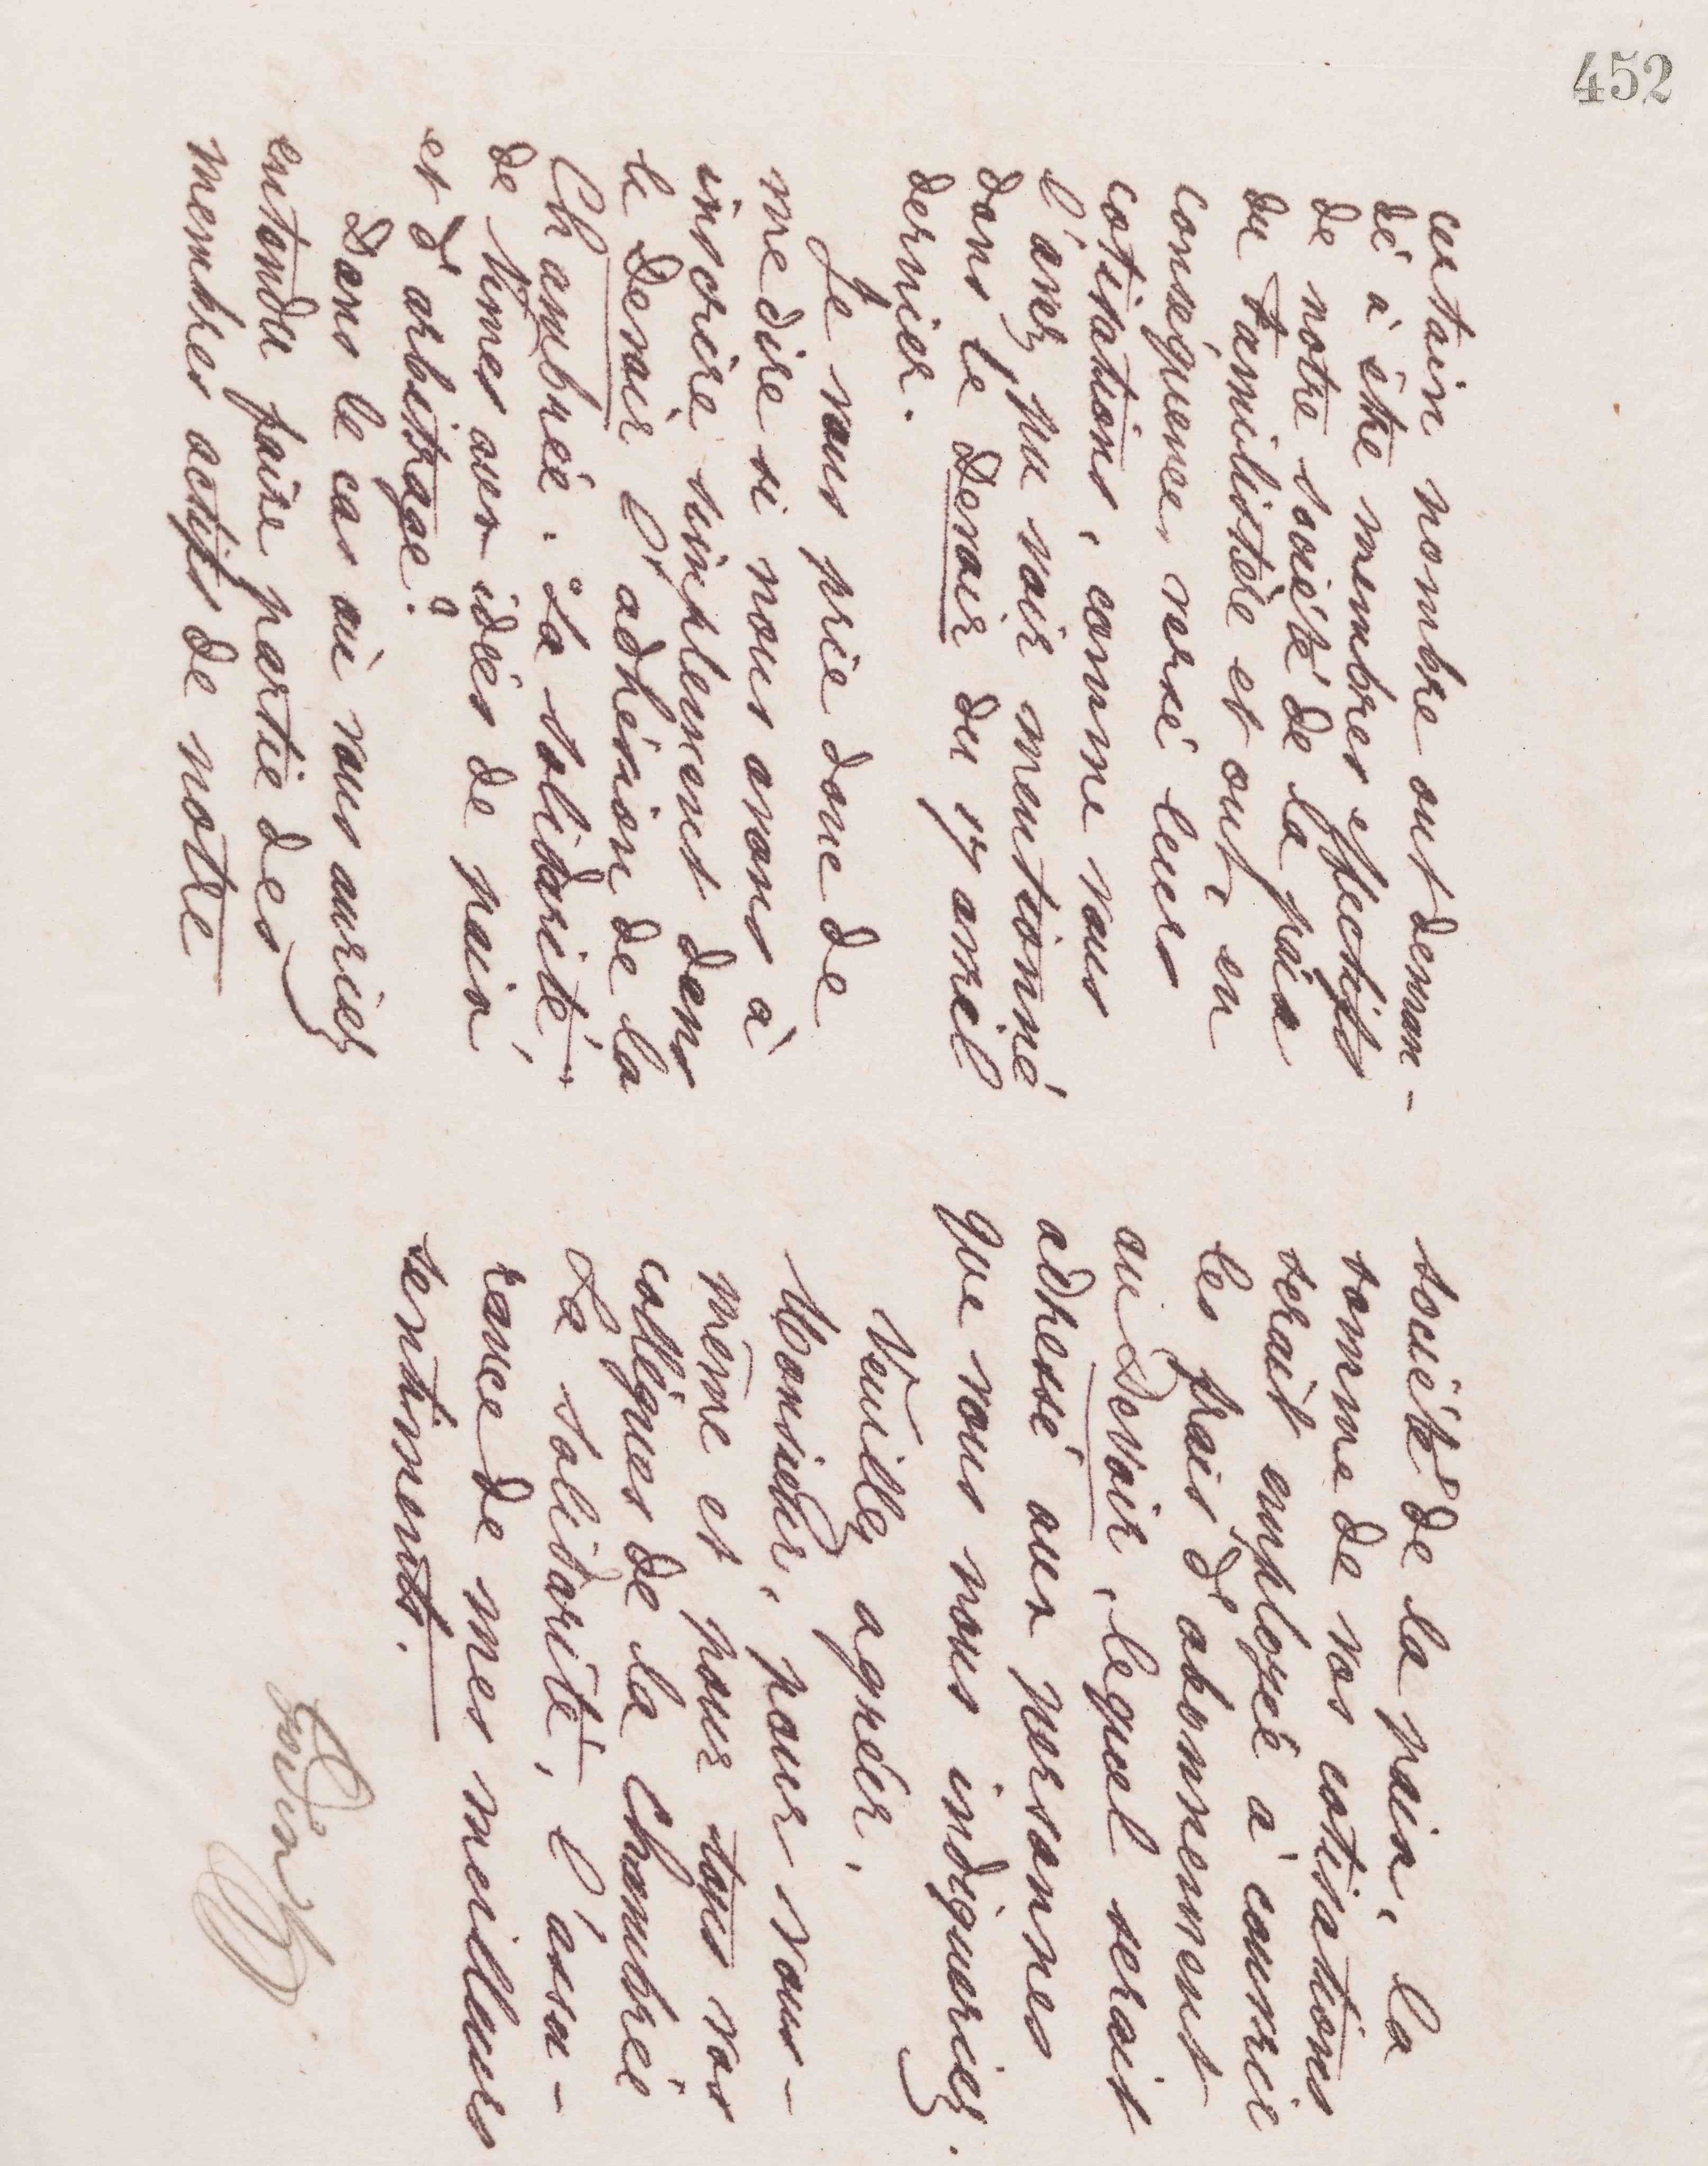 452
certain nombre ont deman-
dé à être membres effectifs
de notre société de la paix
du Familistère et ont, en
conséquence, versé leurs
cotisations, comme vous
l'avez pu voir mentionné
dans le Devoir du 17 avril
dernier.
Je vous prie donc de
me dire si nous avons à
inscrire simplement dans
le Devoir l'adhésion de la
Chambrée "La solidarité"
de Nimes aux idées de paix
et d'arbitrage?
Dans le cas où vous auriez
entendu faire partie des
membres actifs de notre
société de la paix, la
somme de vos cotisations
serait employée à couvrir
les frais d'abonnement
au Devoir, lequel serait
adressé aux personnes
que vous nous indiqueriez.
Veuillez agréer,
Monsieur, pour vous-
même et pour tous vos
collègues de la Chambrée
La solidarité, l'assu-
rance de mes meilleurs
sentiments.
Godin